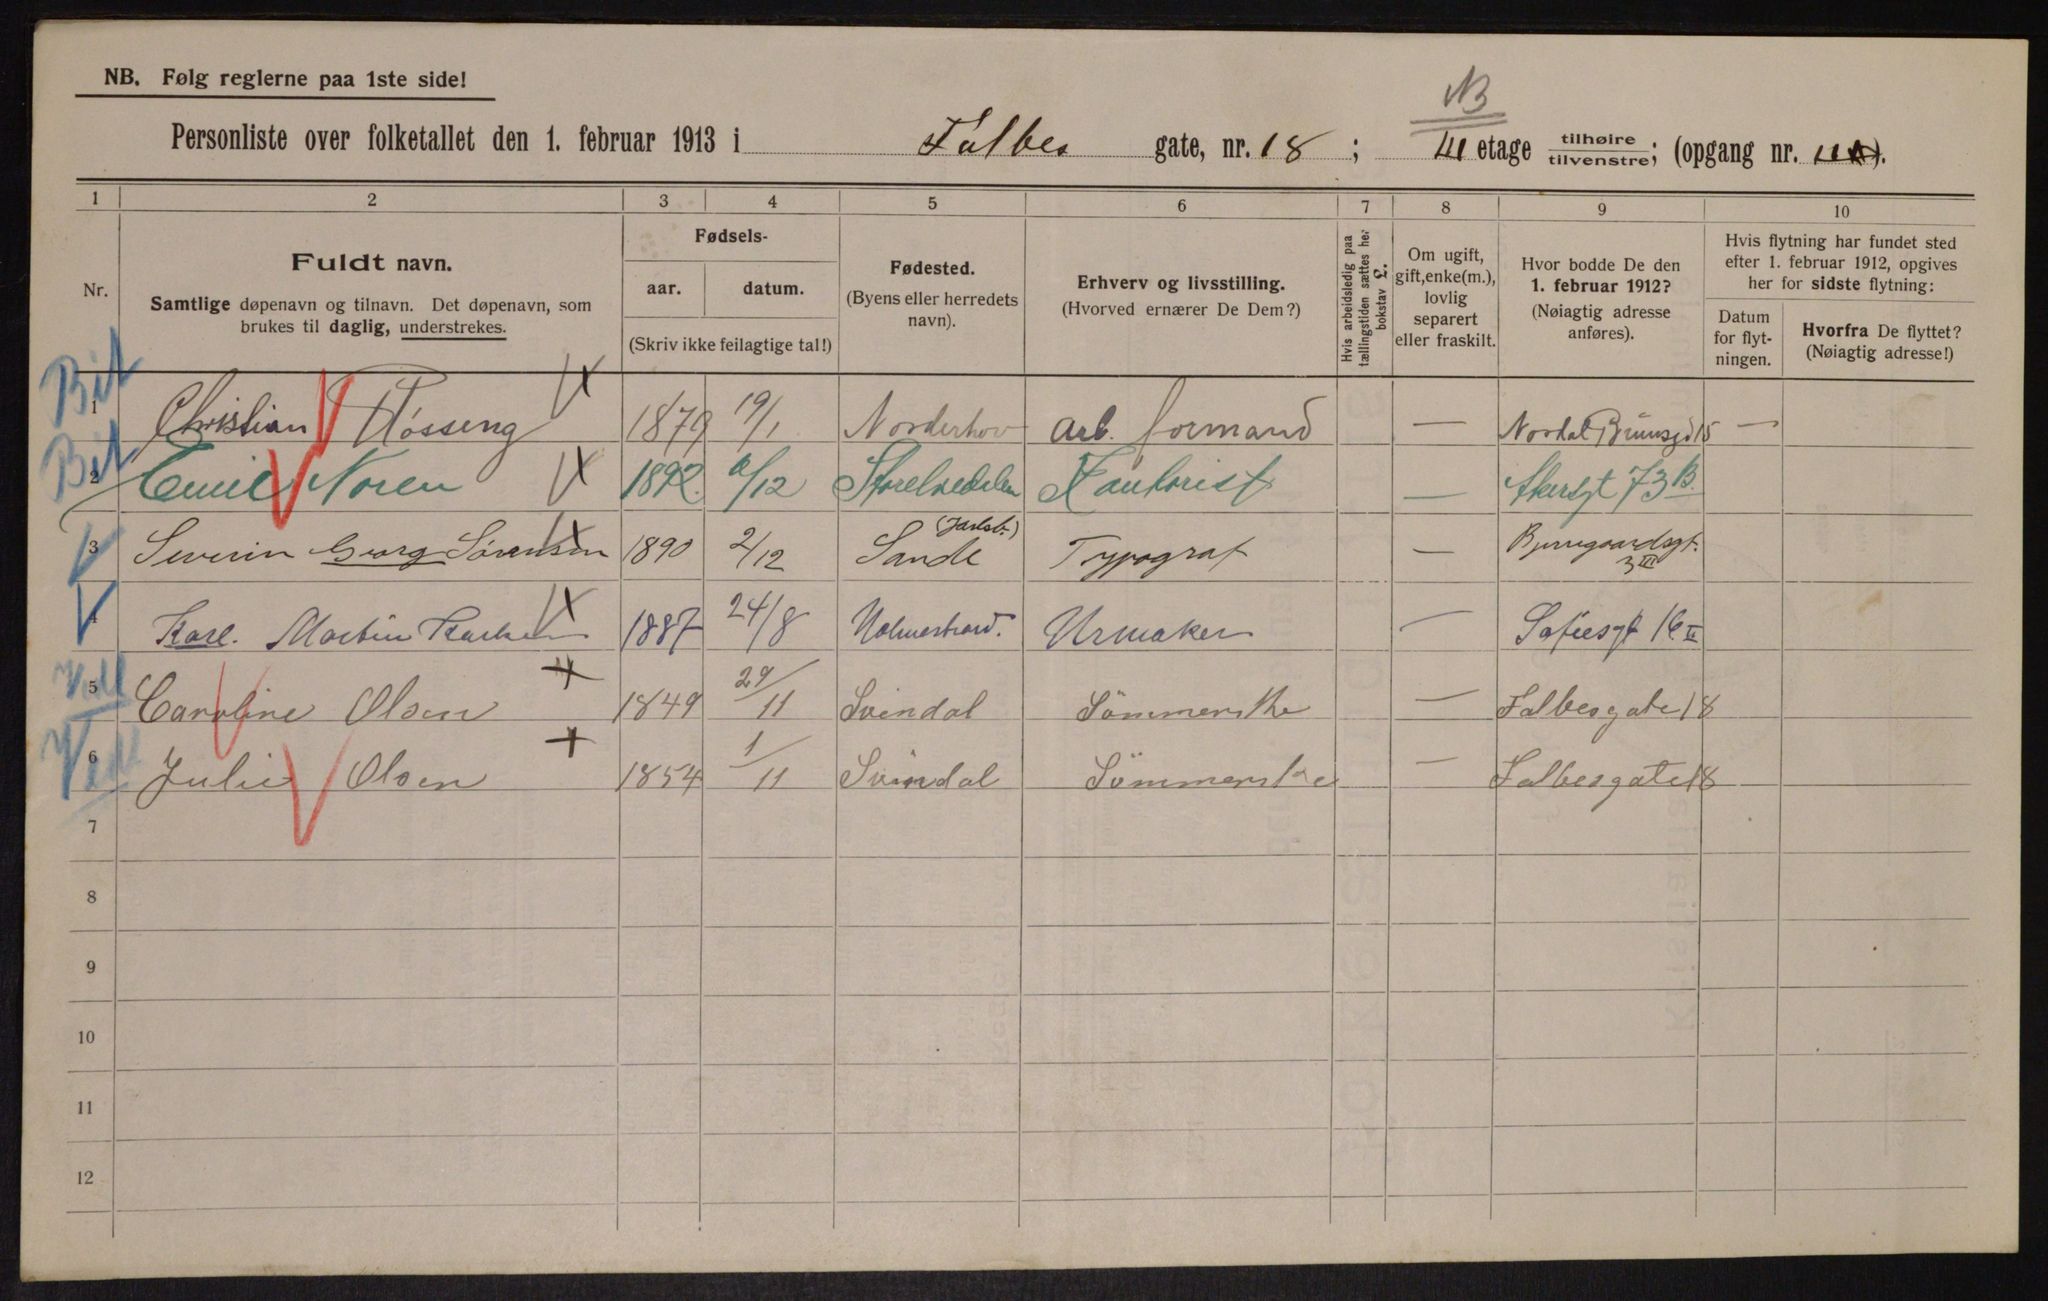 NB. Følg reglerne paa 1ste side!
NB
Personliste over folketallet den 1. februar 1913 i Falbes gate, nr. 18 ; III etage tilhøire tilvenstre; (opgang nr. ).
1 2 3 4 5 6 7 8 9 10
Nr.
Fuldt navn.
Samtlige døpenavn og tilnavn. Det døpenavn, som
brukes til daglig, understrekes.
Fødsels-
aar. datum.
(Skriv ikke feilagtige tal!)
Fødested.
(Byens eller herredets
navn).
Erhverv og livsstilling.
(Hvorved ernærer De Dem?)
Hvis arbeidsledig paa
tællingstiden sættes her
bokstav £.
Om ugift,
gift, enke(m.),
lovlig
separert
eller fraskilt.
Hvor bodde De den
1. februar 1912?
(Nøiagtig adresse
anføres).
Hvis flytning har fundet sted
efter 1. februar 1912, opgives
her for sidste flytning:
Datum
for flyt-
ningen.
Hvorfra De flyttet?
(Nøiagtig adresse!)
1 Christian 1879 19/1 Norderhov Arb. formand — 15 —
2 Emil Noren 1892. /12 Storelvedalen — Akersgt 73 B.
3 Severin Georg Sørensen 1890 2/12 Sande (Jarlsb.) Typograf — Bjerregaardsgt. 3 III
4 Karl. Martin 1887 24/8 Holmestrand. Urmaker — Sofiesgt 16 II
5 Caroline Olsen 1849 29/11 Svindal Sömmerske — Falbesgate 18
6 Julie Olsen 1854 1/11 Svindal Sömmerske — Falbesgate 18
7
8
9
10
11
12